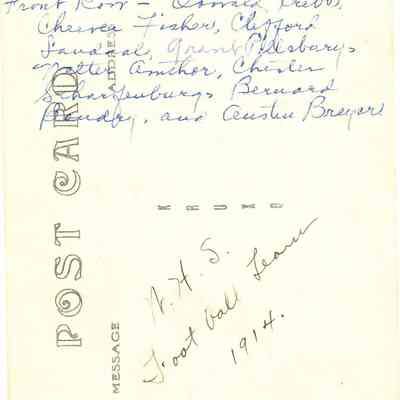 Front Row - Oswald
Cheever Fisher, Clifford
Sandaal, Grant Pillsbury,
Walter Amthor, Chester
Scharfenburg, Bernard
Bendry, and Austin Breyare
POST CARD
ADDRE
KRUXO
MESSAGE
N. H. S.
Foot ball Team
1914.